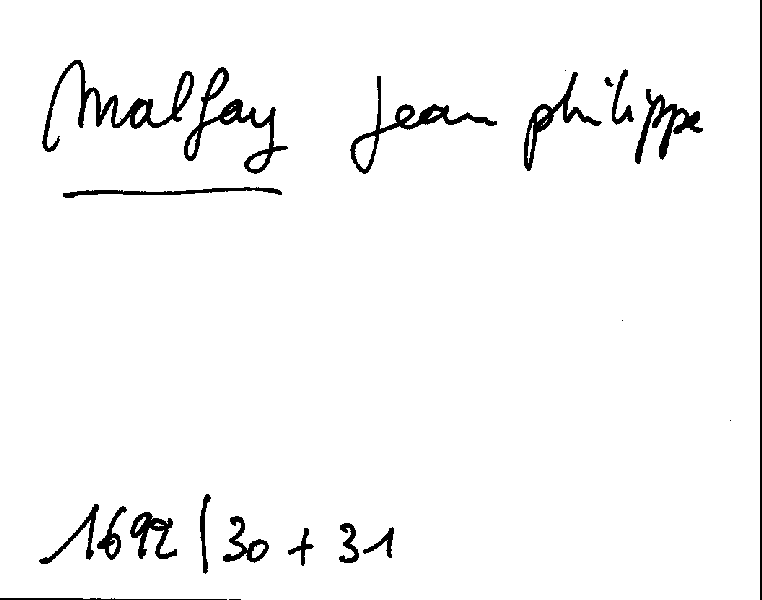 Malfay Jean philippe
1692 | 30 + 31